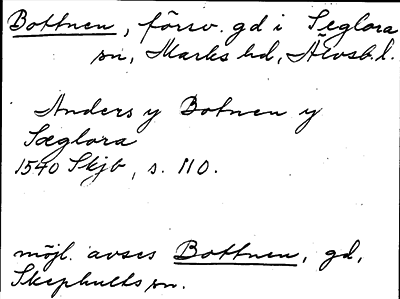 Bottnen, försv. gd i Seglora
sn, Marks hd, Älvsb. l.
Anders y Botnen y
Sæglora
1540 Skjb, s. 110.
möjl. avses Bottnen, gd,
Skephults sn.